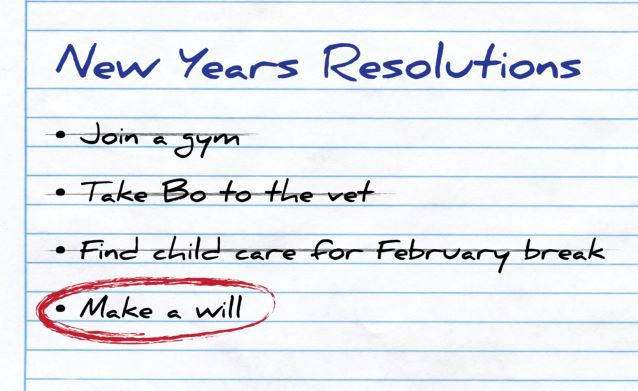 New Years Resolutions
• Join a gym
• Take Bo to the vet
• Find child care for February break
• Make a will